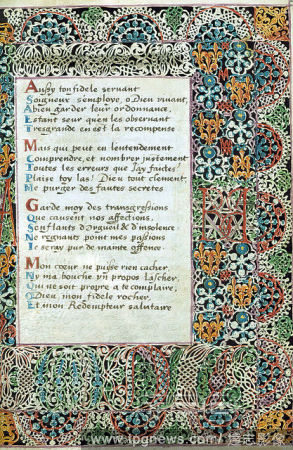 Aussy ton fidele servant
Soigneux s'employe, o Dieu vivant,
A bien garder leur ordonnance,
Estant seur qu'en les observant
Tresgrande en est la recompense
Mais qui peut en l'entendement
Comprendre, et nombrer justement
Toutes les erreurs que j'ay faites?
Plaise toy las! Dieu tout clement,
Me purger des fautes secretes
Garde moy des transgressions
Que causent nos affections,
Souflants d'Orgueil & d'insolence:
Ne regnants point mes passions
Je seray pur de mainte offence
Mon cœur ne puisse rien cacher
Ny ma bouche un propos lascher,
Qui ne soit propre a te complaire,
O Dieu, mon fidele rocher,
Et mon Redempteur salutaire
www.tpgnews.com/ 達志影像